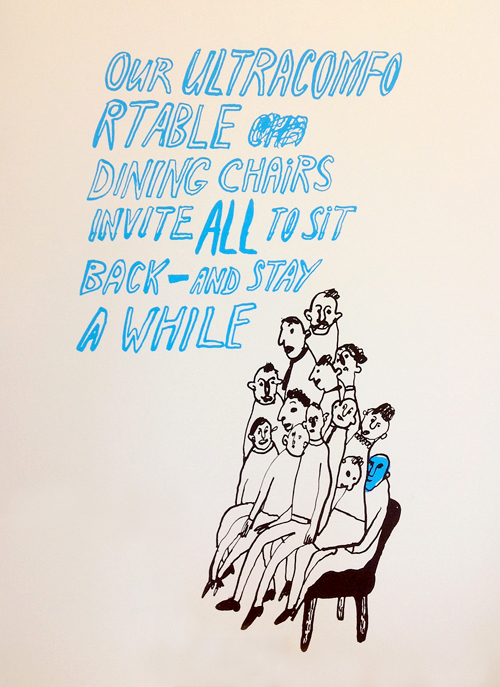 OUR ULTRACOMFO
RTABLE
DINING CHAiRS
INVITE ALL TO SiT
BACK-AND STAY
A WHILE